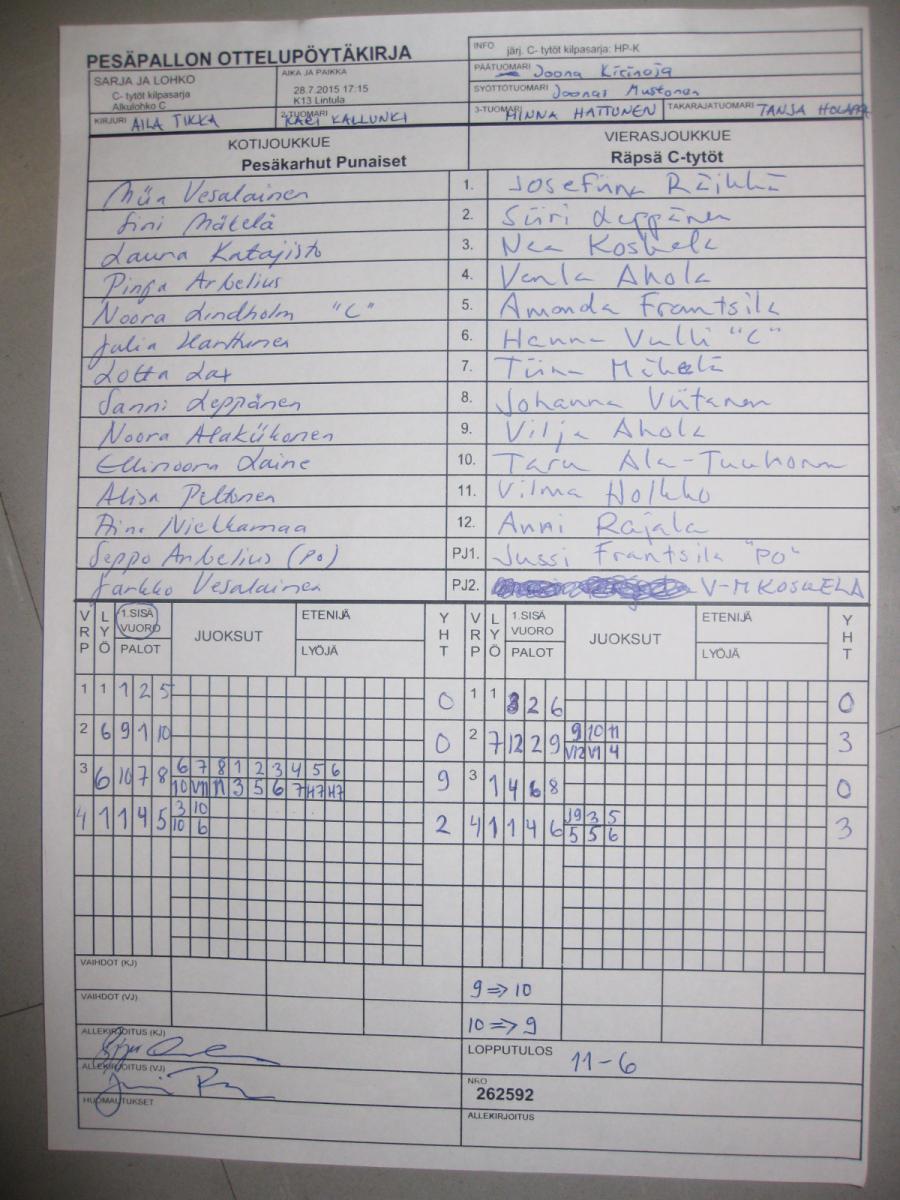 PESÄPALLON OTTELUPÖYTÄKIRJA
INFO järj. C- tytöt kilpasarja: HP-K
SARJA JA LOHKO
C- tytöt kilpasarja
Alkulohko C
AIKA JA PAIKKA
28.7.2015 17:15
K13 Lintula
PÄÄTUOMARI Joona Kirinoja
SYÖTTÖTUOMARI Joonas Mustonen
KIRJURI AILA TIKKA
2-TUOMARI KARI KALLUNKI
3-TUOMARI MINNA HATTUNEN
TAKARAJATUOMARI TANJA HOLAPPA
KOTIJOUKKUE
Pesäkarhut Punaiset
VIERASJOUKKUE
Räpsä C-tytöt
Miia Vesalainen 1. Josefiina Räikkä
Sini Mäkelä 2. Siiri Leppänen
Laura Katajisto 3. Nea Koskela
Pinja Arbelius 4. Venla Ahola
Noora Lindholm "C" 5. Amanda Frantsila
Julia Hanttunen 6. Hanna Vulli "C"
Lotta Lax 7. Tiina Mäkelä
Sanni Leppänen 8. Johanna Viitanen
Noora Alakiikonen 9. Vilja Ahola
Ellinoora Laine 10. Taru Ala-Tuuhonen
Alisa Peltonen 11. Vilma Holkko
Niekkamaa 12. Anni Rajala
Seppo Arbelius (PO) PJ1. Jussi Frantsila "PO"
Jarkko Vesalainen PJ2. V-M KOSKELA
VRP LYÖ 1.SISÄ VUORO PALOT JUOKSUT ETENIJÄ LYÖJÄ YHT VRP LYÖ 1.SISÄ VUORO PALOT JUOKSUT ETENIJÄ LYÖJÄ YHT
1 1 1 2 5 0 1 1 3 2 6 0
2 6 9 1 10 0 2 7 12 2 9 9 10 11 3
V12 V1 4
3 6 10 7 8 6 7 8 1 2 3 4 5 6 9 3 1 4 6 8 0
10 V11 11 3 5 6 7 H7 H7
4 1 1 4 5 3 10 2 4 1 1 4 6 J9 3 5 3
10 6 5 5 6
VAIHDOT (KJ) 9 => 10
VAIHDOT (VJ) 10 => 9
ALLEKIRJOITUS (KJ)
LOPPUTULOS 11-6
ALLEKIRJOITUS (VJ)
NRO
262592
HUOMAUTUKSET
ALLEKIRJOITUS